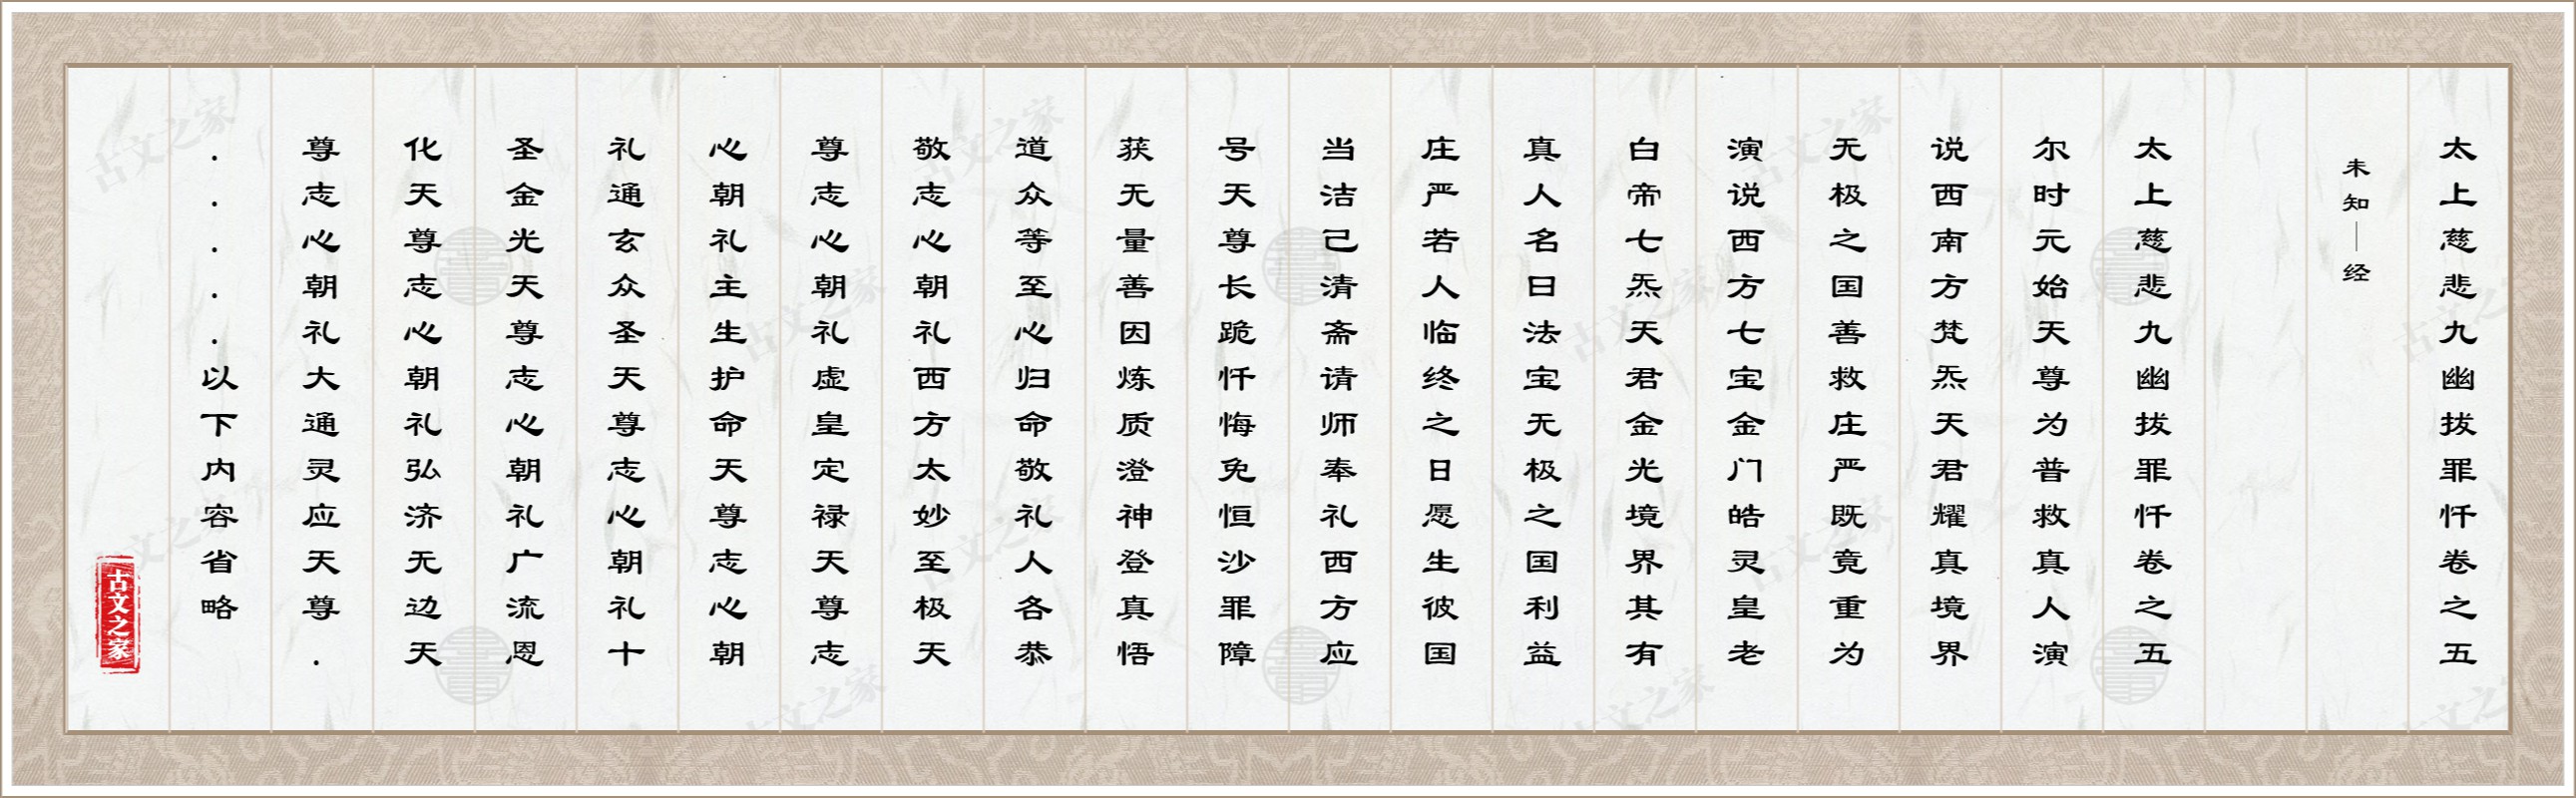 太上慈悲九幽拔罪忏卷之五
未知｜经
太上慈悲九幽拔罪忏卷之五
尔时元始天尊为普救真人演
说西南方梵炁天君耀真境界
无极之国善救庄严既竟重为
演说西方七宝金门皓灵皇老
白帝七炁天君金光境界其有
真人名曰法宝无极之国利益
庄严若人临终之日愿生彼国
当洁己清斋请师奉礼西方应
号天尊长跪忏悔免恒沙罪障
获无量善因炼质澄神登真悟
道众等至心归命敬礼人各恭
敬志心朝礼西方太妙至极天
尊志心朝礼虚皇定禄天尊志
心朝礼主生护命天尊志心朝
礼通玄众圣天尊志心朝礼十
圣金光天尊志心朝礼广流恩
化天尊志心朝礼弘济无边天
尊志心朝礼大通灵应天尊.
.....以下内容省略
古文之家